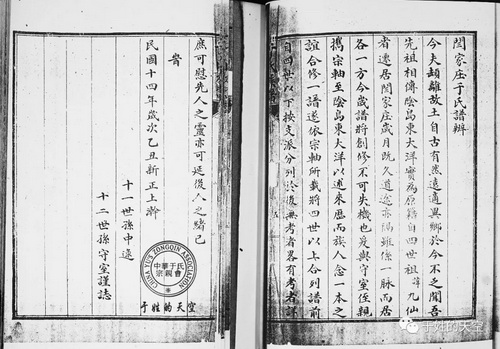 閆家庄于氏譜辦
今夫頡離故土自古有然遠適異鄉於今不乏聞吾
先祖相傳陰島東大洋實為原籍自四世祖諱九仙
者遷居閆家庄歲月既久道途亦隔雖係一脉而居
各一方今歲譜將創修不可失機也爰與守室侄親
攜宗軸至陰島東大洋以述來歷而族人念一本之
誼合修一譜遂依宗軸所載將四世以上合列譜前
自四世以下按支派分列於後無考者畧有考者詳
庶可慰先人之靈亦可延後人之緒已
旹
民國十四年歲次乙丑新正上澣
十一世孫申
十二世孫守室謹誌
CHINA YU'S ZONGQIN ASSOCIATION
中華于氏
宗親會
于姓的天空
于姓的天空